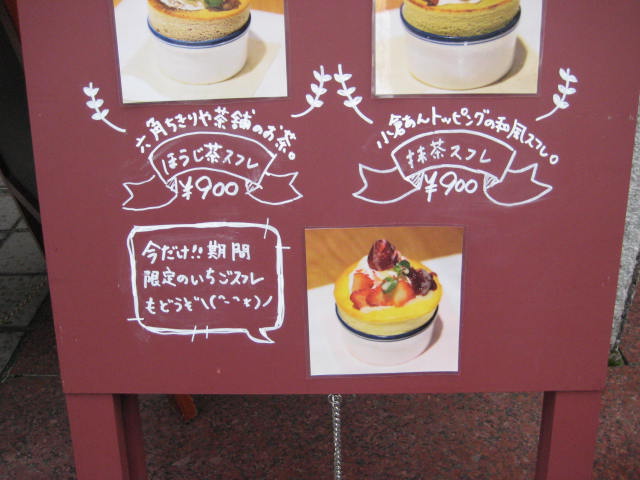 六角ちきりや茶舗のお茶。
ほうじ茶スフレ
¥900
小倉あんトッピングの和風スフレ。
抹茶スフレ
¥900
今だけ!! 期間
限定のいちごスフレ
もどうぞ\(^-^*)ノ